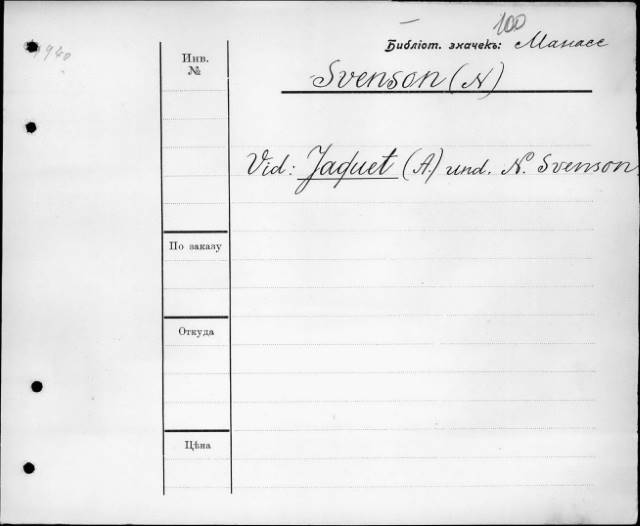 100
Библіот. значекъ: Манасс
Инв.
№
Svenson (N)
Vid: Jaquet (A.) und. N. Svenson.
По заказу
Откуда
Цѣна